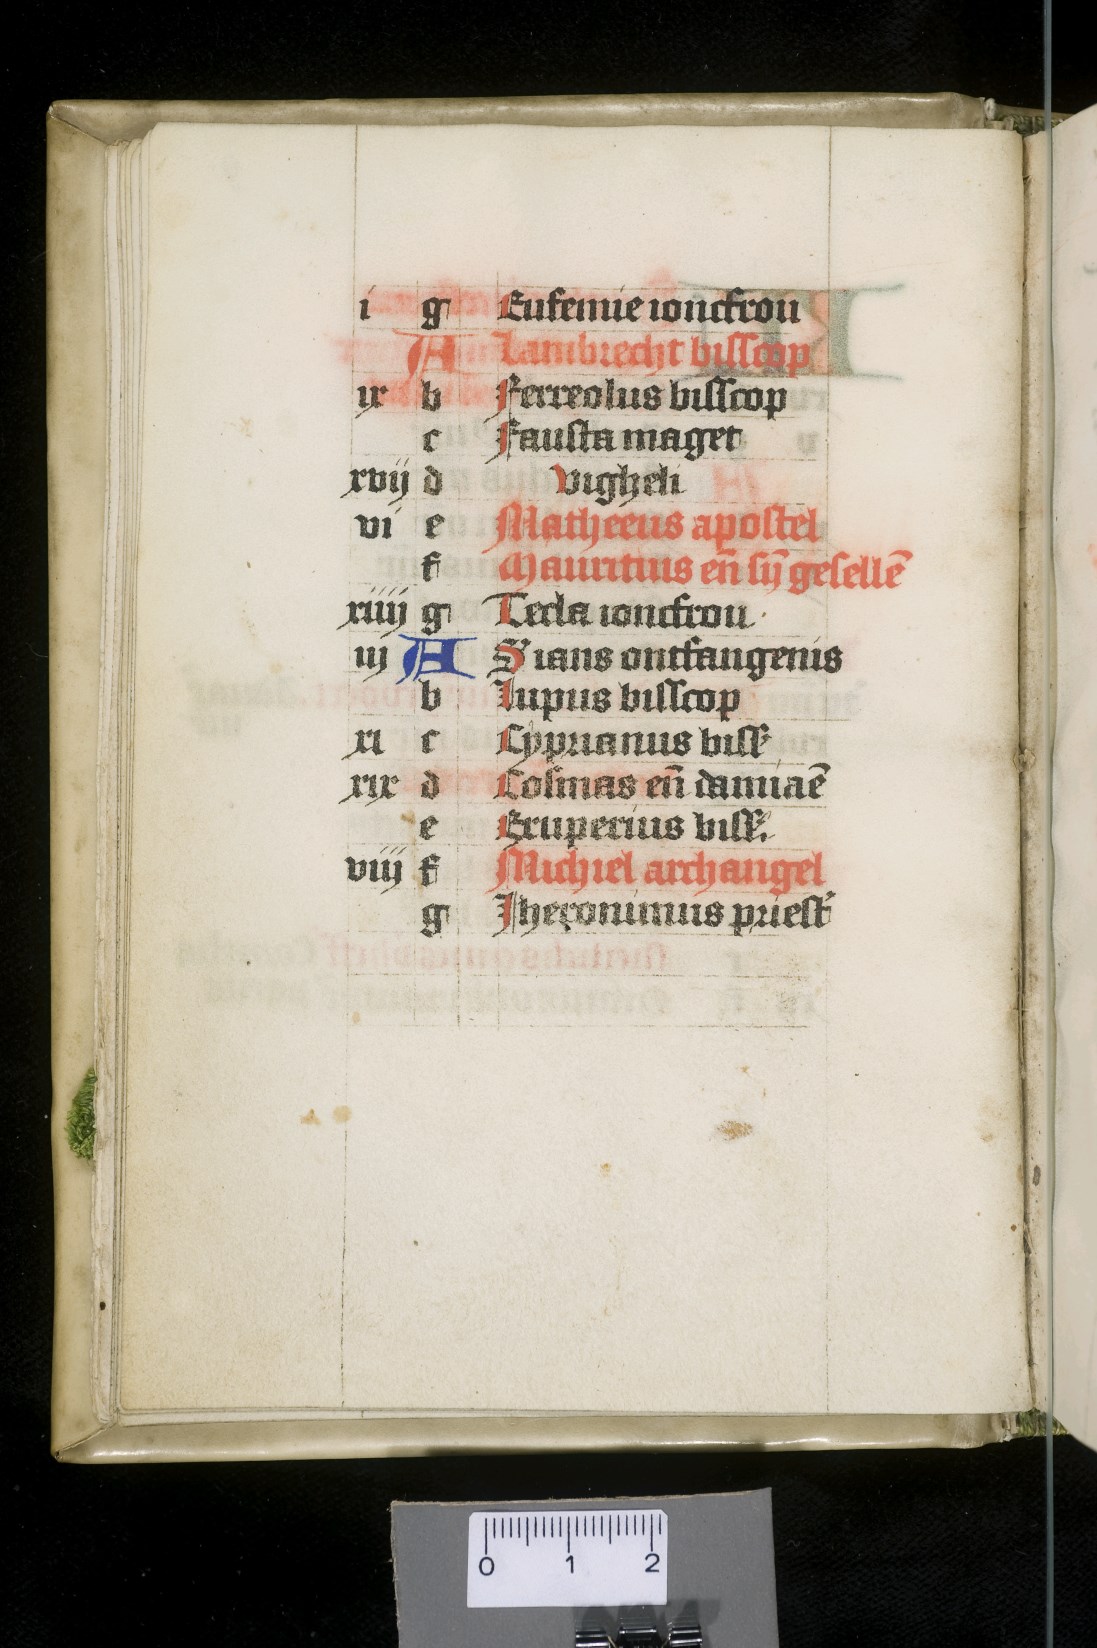 i g Eufemie ioncfrou
A Lambrecht bisscop
ix b Ferreolus bisscop
c Fausta maget
xvij d Vigheli
vi e Matheeus apostel
f Mauritius en̄ sy̅ gesellē
xiiij g Tecla ioncfrou
iij A S ians ontfangenis
b Lupus bisscop
xi c Cyprianus biss̉
xix d Cosmas en̄ damiaē
e Exuperius biss̉.
viij f Michiel archangel
g Jheronimus priest̉
0 1 2